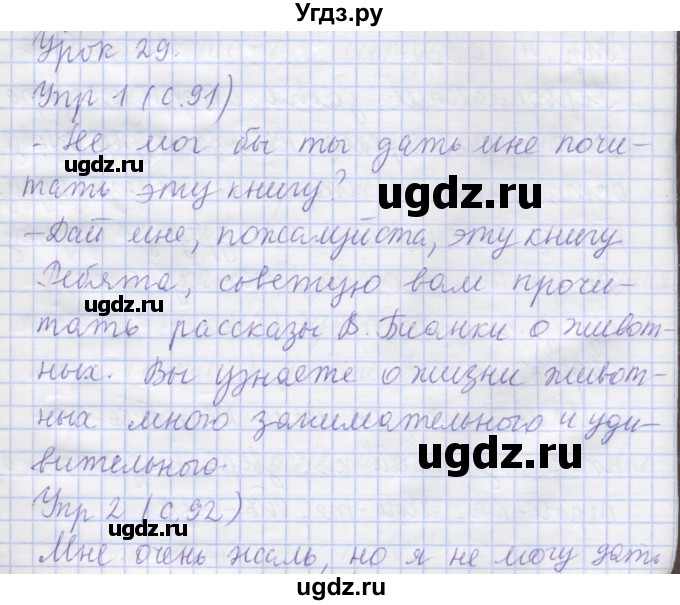 Угдз.ру
Урок 29.
Упр 1 (с.91)
- Не мог бы ты дать мне почи-
тать эту книгу?
ugdz.ru
- Дай мне, пожалуйста, эту книгу
Ребята, советую вам прочи-
ugdz.ru
тать рассказы В. Бианки о живот-
ных. Вы узнаете о жизни живот-
ных много занимательного и уди-
ugdz.ru
вительного.
Упр 2 (с.92)
ugdz.ru
Мне очень жаль, но я не могу дать
ugdz.ru